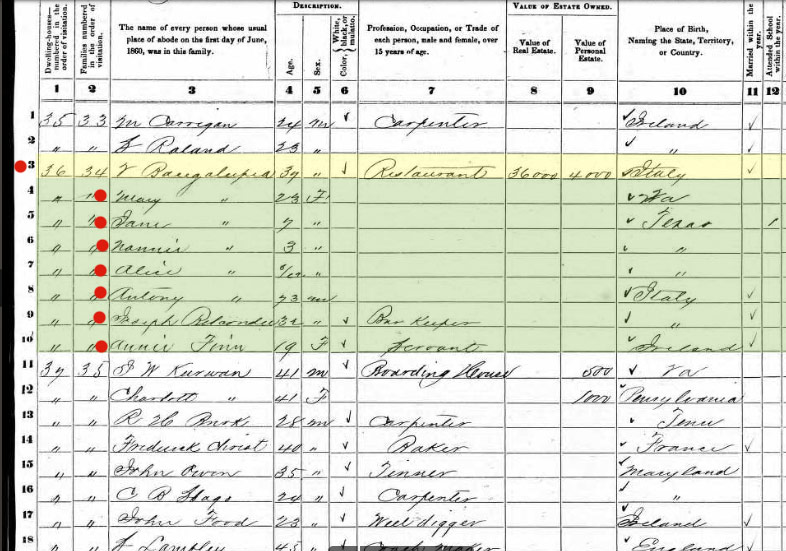 DESCRIPTION.
VALUE OF ESTATE OWNED.
Dwelling-houses—numbered in the order of visitation.
Families numbered in the order of visitation.
The name of every person whose usual place of abode on the first day of June, 1860, was in this family.
Age.
Sex.
Color, White, black, or mulatto.
Profession, Occupation, or Trade of each person, male and female, over 15 years of age.
Value of Real Estate.
Value of Personal Estate.
Place of Birth, Naming the State, Territory, or Country.
Married within the year.
Attended School within the year.
1 2 3 4 5 6 7 8 9 10 11 12
1 35 33 M Carrigan 24 m Carpenter Ireland
2 " " Raland 23 " "
3 36 34 39 Restaurant 36000 4000 Italy
4 " " Mary " 23 F Va
5 " " Jane " 7 " Texas 1
6 " " Nannie " 3 " "
7 " " Alice " " "
8 " " Antony " 23 m Italy
9 " " Joseph " Bar Keeper "
10 " " Annie Finn 19 F Servant Ireland
11 37 35 W Kurwan 41 m Boarding House 500 Va
12 " " Charlott " 41 F 1000 Pensylvania
13 " " R 28 m Carpenter Tenn
14 " " Frederick Christ 40 " Baker France
15 " " John Owen 35 " Tinner Maryland
16 " " C B 24 " Carpenter "
17 " " John Food 23 " Well digger Ireland
18 " " Lambley 45 " Coach Maker England